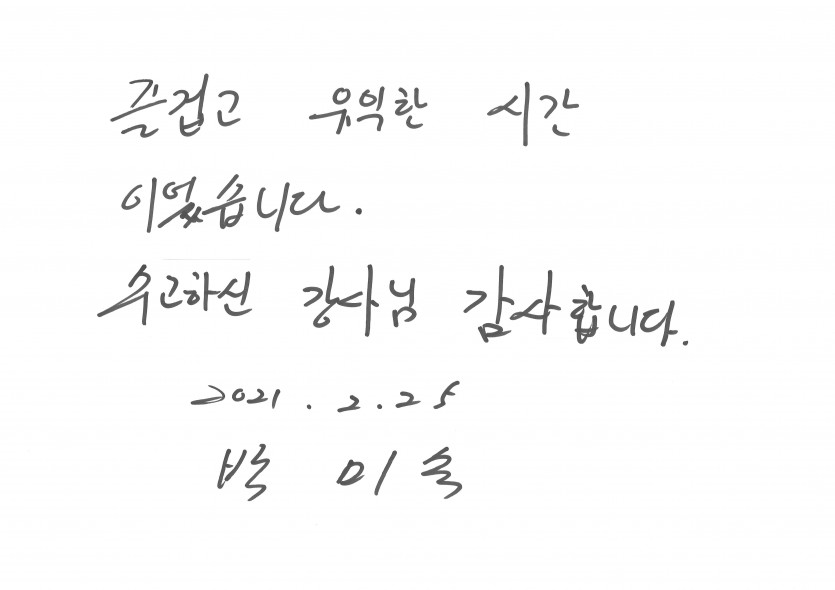 즐겁고 유익한 시간
이었습니다.
수고하신 강사님 감사합니다.
2021. 2. 25
박 미 숙